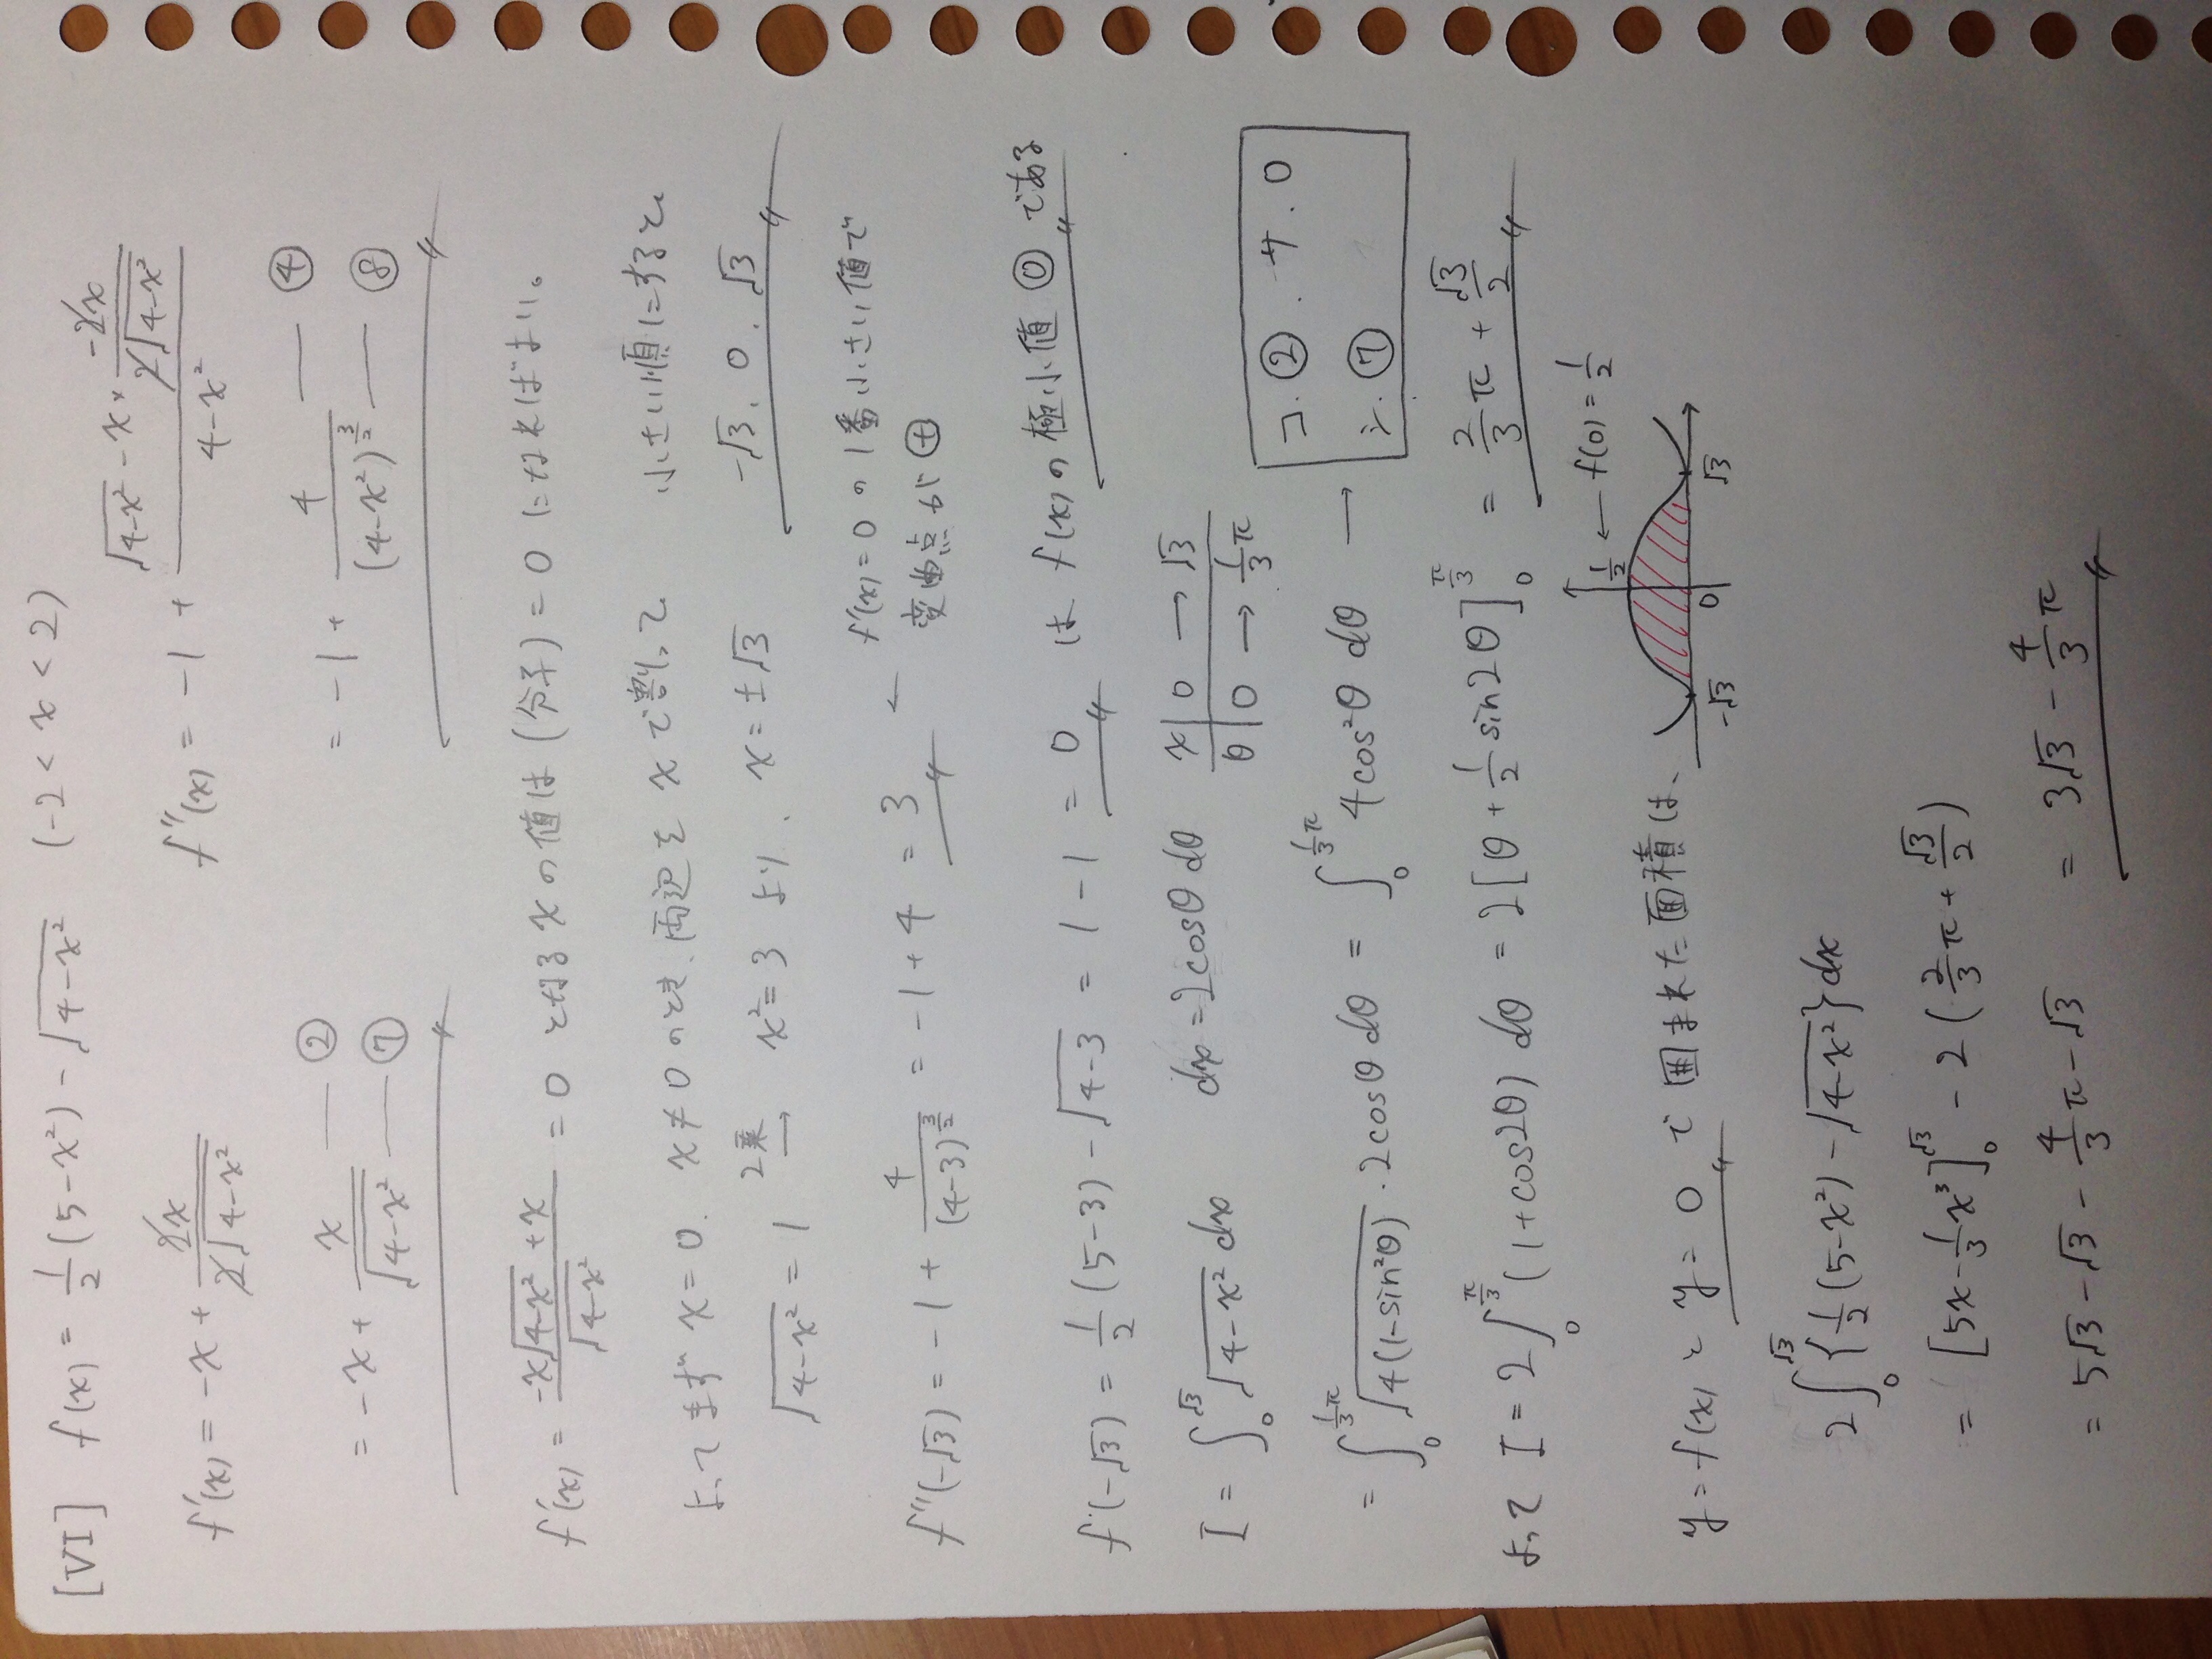 [VI] f(x) = 1/2 (5-x²) - √(4-x²) (-2 < x < 2)
f'(x) = -x + 2x/(2√(4-x²)) f''(x) = -1 + (√(4-x²) - x × -2x/(2√(4-x²)))/(4-x²)
= -x + x/√(4-x²) — ② — ⑦ = -1 + 4/(4-x²)^(3/2) — ④ — ⑧
f'(x) = (-x√(4-x²) + x)/√(4-x²) = 0 となる x の値は (分子) = 0 になればよい。
よって まず x = 0. x ≠ 0 のとき、両辺を x で割って 小さい順にすると
√(4-x²) = 1 2乗→ x² = 3 より、 x = ±√3 -√3, 0, √3
f''(-√3) = -1 + 4/(4-3)^(3/2) = -1 + 4 = 3 ← f'(x) = 0 の 1番小さい値で
変曲点が ⊕
f(-√3) = 1/2 (5-3) - √(4-3) = 1 - 1 = 0 は f(x) の 極小値 ⓪ である
I = ∫₀^√3 √(4-x²) dx dx = 2cosθ dθ x | 0 → √3
θ | 0 → 1/3 π
= ∫₀^(1/3 π) √(4(1-sin²θ)) · 2cosθ dθ = ∫₀^(1/3 π) 4cos²θ dθ → コ. ② . サ. 0
シ. ⑦
よって I = 2∫₀^(π/3) (1+cos2θ) dθ = 2[θ + 1/2 sin2θ]₀^(π/3) = 2/3 π + √3/2
y = f(x) と y = 0 で 囲まれた面積は、
1/2 ← f(0) = 1/2
-√3 0 √3
2∫₀^√3 {1/2 (5-x²) - √(4-x²)} dx
= [5x - 1/3 x³]₀^√3 - 2 (2/3 π + √3/2)
= 5√3 - √3 - 4/3 π - √3 = 3√3 - 4/3 π